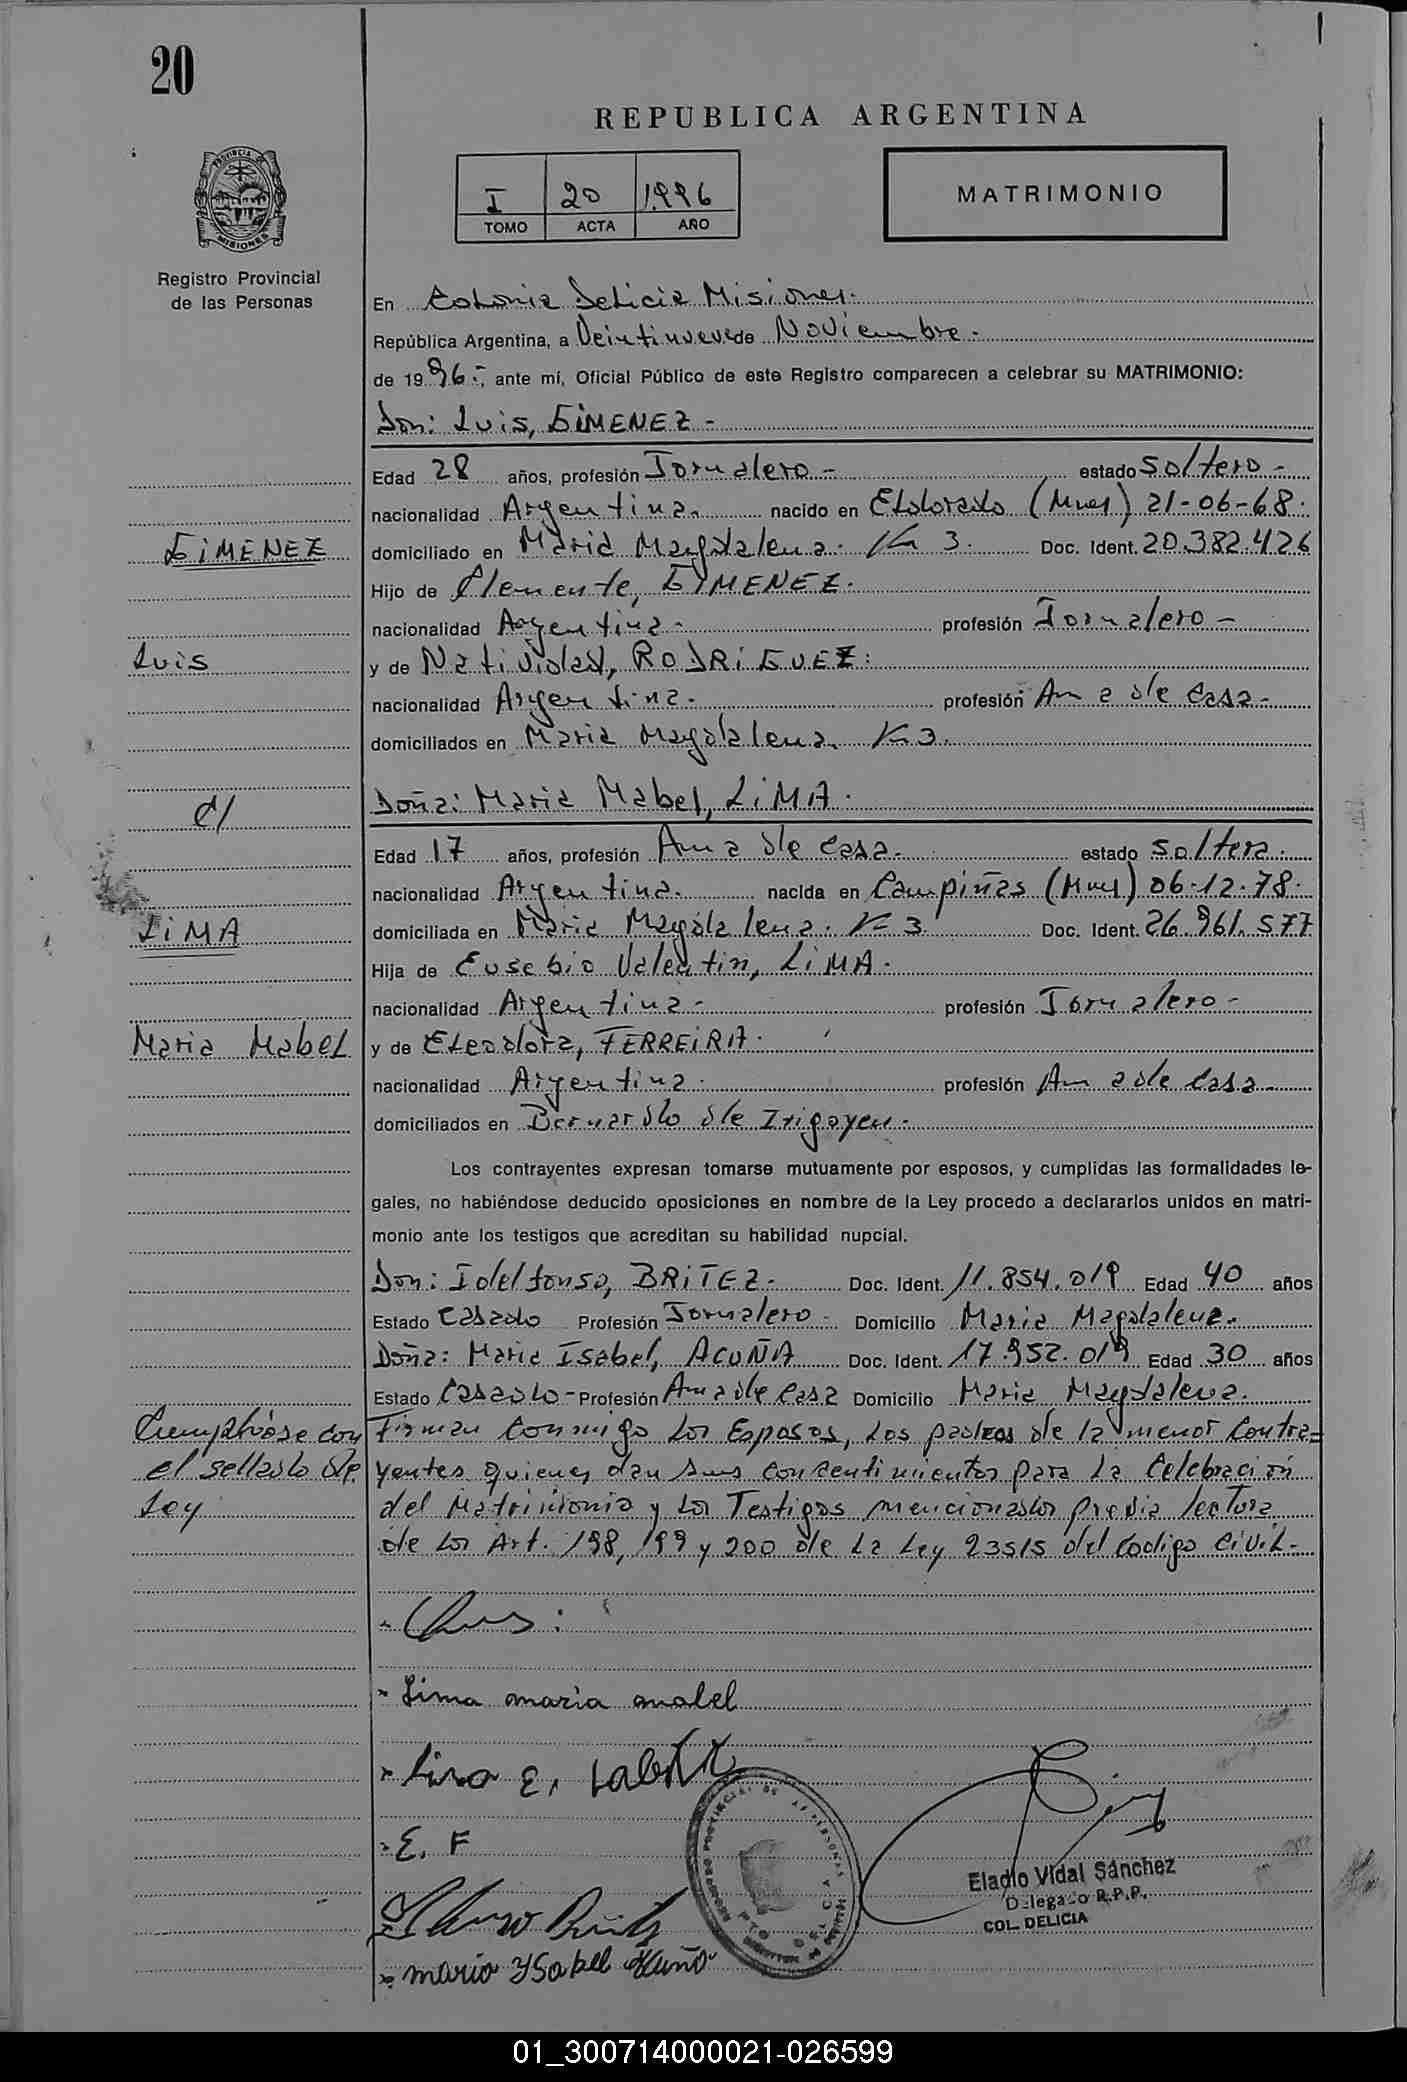 20
REPUBLICA ARGENTINA
I 20 1996
TOMO ACTA AÑO
MATRIMONIO
PROVINCIA DE
MISIONES
Registro Provincial
de las Personas
En Colonia Delicia Misiones.
República Argentina, a Veintinueve de Noviembre.-
de 1996.-, ante mí, Oficial Público de este Registro comparecen a celebrar su MATRIMONIO:
Don: Luis, GiMENEZ-
Edad 28 años, profesión Jornalero- estado soltero-
nacionalidad Argentina. nacido en Eldorado (Mnes) 21-06-68.
GiMENEZ
domiciliado en Maria Magdalena. K 3. Doc. Ident. 20.382.426
Hijo de Clemente, GiMENEZ.
nacionalidad Argentina- profesión Jornalero-
Luis
y de Natividad, RODRiGUEZ:
nacionalidad Argentina. profesión Ama de Casa-
domiciliados en Maria Magdalena. K 3.
C/
Doña: Maria Mabel, LiMA.
Edad 17 años, profesión Ama de Casa. estado soltera.
nacionalidad Argentina. nacida en Campiñas (Mnes) 06-12-78.
LiMA
domiciliada en Maria Magdalena. K 3 Doc. Ident. 26.961.577
Hija de Eusebio Valentin, LiMA.
nacionalidad Argentina- profesión Jornalero-
Maria Mabel
y de Eleodora, FERREiRA.
nacionalidad Argentina. profesión Ama de Casa-
domiciliados en Bernardo de Irigoyen.
Los contrayentes expresan tomarse mutuamente por esposos, y cumplidas las formalidades le-
gales, no habiéndose deducido oposiciones en nombre de la Ley procedo a declararlos unidos en matri-
monio ante los testigos que acreditan su habilidad nupcial.
Don: Idelfonso, BRiTEZ- Doc. Ident. 11.854.019 Edad 40 años
Estado Casado Profesión Jornalero- Domicilio Maria Magdalena.
Doña: Maria Isabel, ACUÑA Doc. Ident. 17.952.019 Edad 30 años
Estado Casado- Profesión Ama de Casa Domicilio Maria Magdalena.
Cumplióse con
el sellado de
Ley
Firman Conmigo Los Esposos, Los padres de la menor Contra=
yentes quienes dan sus Consentimientos para La Celebración
del Matrimonio y Los Testigos mencionados previa lectura
de Los Art. 198, 199 y 200 de La Ley 23515 del Codigo CiviL-
Lima maria mabel
E. F
maria YSabel Acuña
Eladio Vidal Sánchez
Delegado R.P.P.
COL. DELICIA
01_300714000021-026599